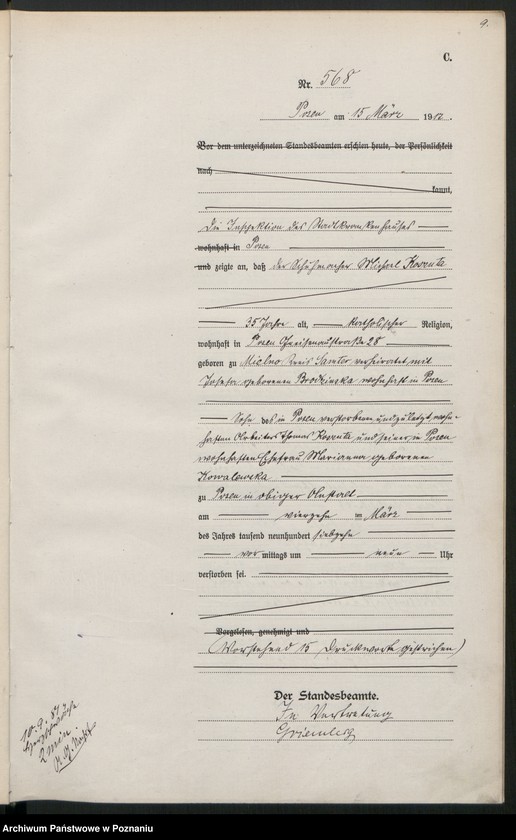 9.
C.
Nr. 568
Posen am 15 März 1917.
Vor dem unterzeichneten Standesbeamten erschien heute, der Persönlichkeit
nach
kannt,
Die Inspektion des Stadtkrankenhauses
wohnhaft in Posen
und zeigte an, daß der Schuhmacher Michael Koszuta
35 Jahre alt, katholischer Religion,
wohnhaft in Posen Gneisenaustraße 28
geboren zu Mielno Kreis verheiratet mit
Josefa geborenen Brodzinska wohnhaft in Posen
Sohn des in Posen verstorbenen und zuletzt wohn-
haften Arbeiters Thomas Koszuta und seiner in Posen
wohnhaften Ehefrau Marianna geborenen
Kowalewska
zu Posen in obiger Anstalt
am vierzehn ten März
des Jahres tausend neunhundert siebzehn
vor mittags um neun Uhr
verstorben sei.
Vorgelesen, genehmigt und
(Vorstehend 15 Druckworte gestrichen)
Der Standesbeamte.
In Vertretung